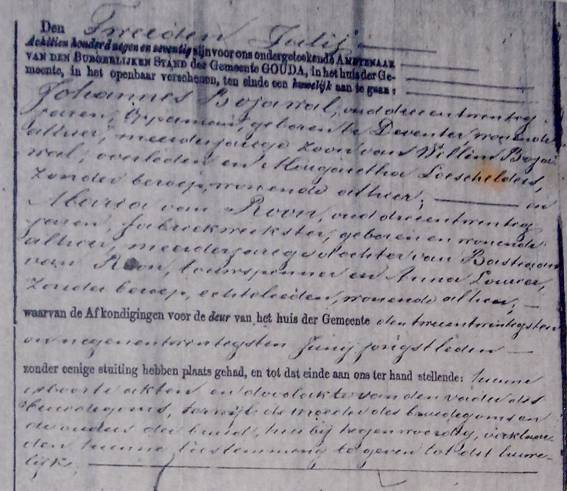 Den Tweeden Julij
Achttien honderd negen en zeventig zijn voor ons ondergeteekende AMBTENAAR
VAN DEN BURGERLIJKEN STAND der Gemeente GOUDA, in het huis der Ge-
meente, in het openbaar verschenen, ten einde een huwelijk aan te gaan:
Johannes Bojawal, oud drieentwintig
jaren, geboren te Deventer wonende
alhier, meerderjarige zoon van Willem Boja
wal, overleden en Margaretha Loeschelders,
zonder beroep, wonende alhier; en
Maria van Roon, oud drieentwintig
jaren, fabriekwerkster, geboren en wonende
alhier, meerderjarige dochter van Bastiaan
van Roon, touwspinner en Anna Louwer,
zonder beroep, echtelieden, wonende alhier,
waarvan de Afkondigingen voor de deur van het huis der Gemeente den tweentwintigsten
en negenentwintigsten Junij jongstleden
zonder eenige stuiting hebben plaats gehad, en tot dat einde aan ons ter hand stellende: hunne
geboorteakten en doodakte van den vader des
bruidegoms, terwijl de moeder des bruidegoms en
de ouders der bruid, hierbij tegenwoordig, verklaren
den hunne toestemming te geven tot dit huwe-
lijk.